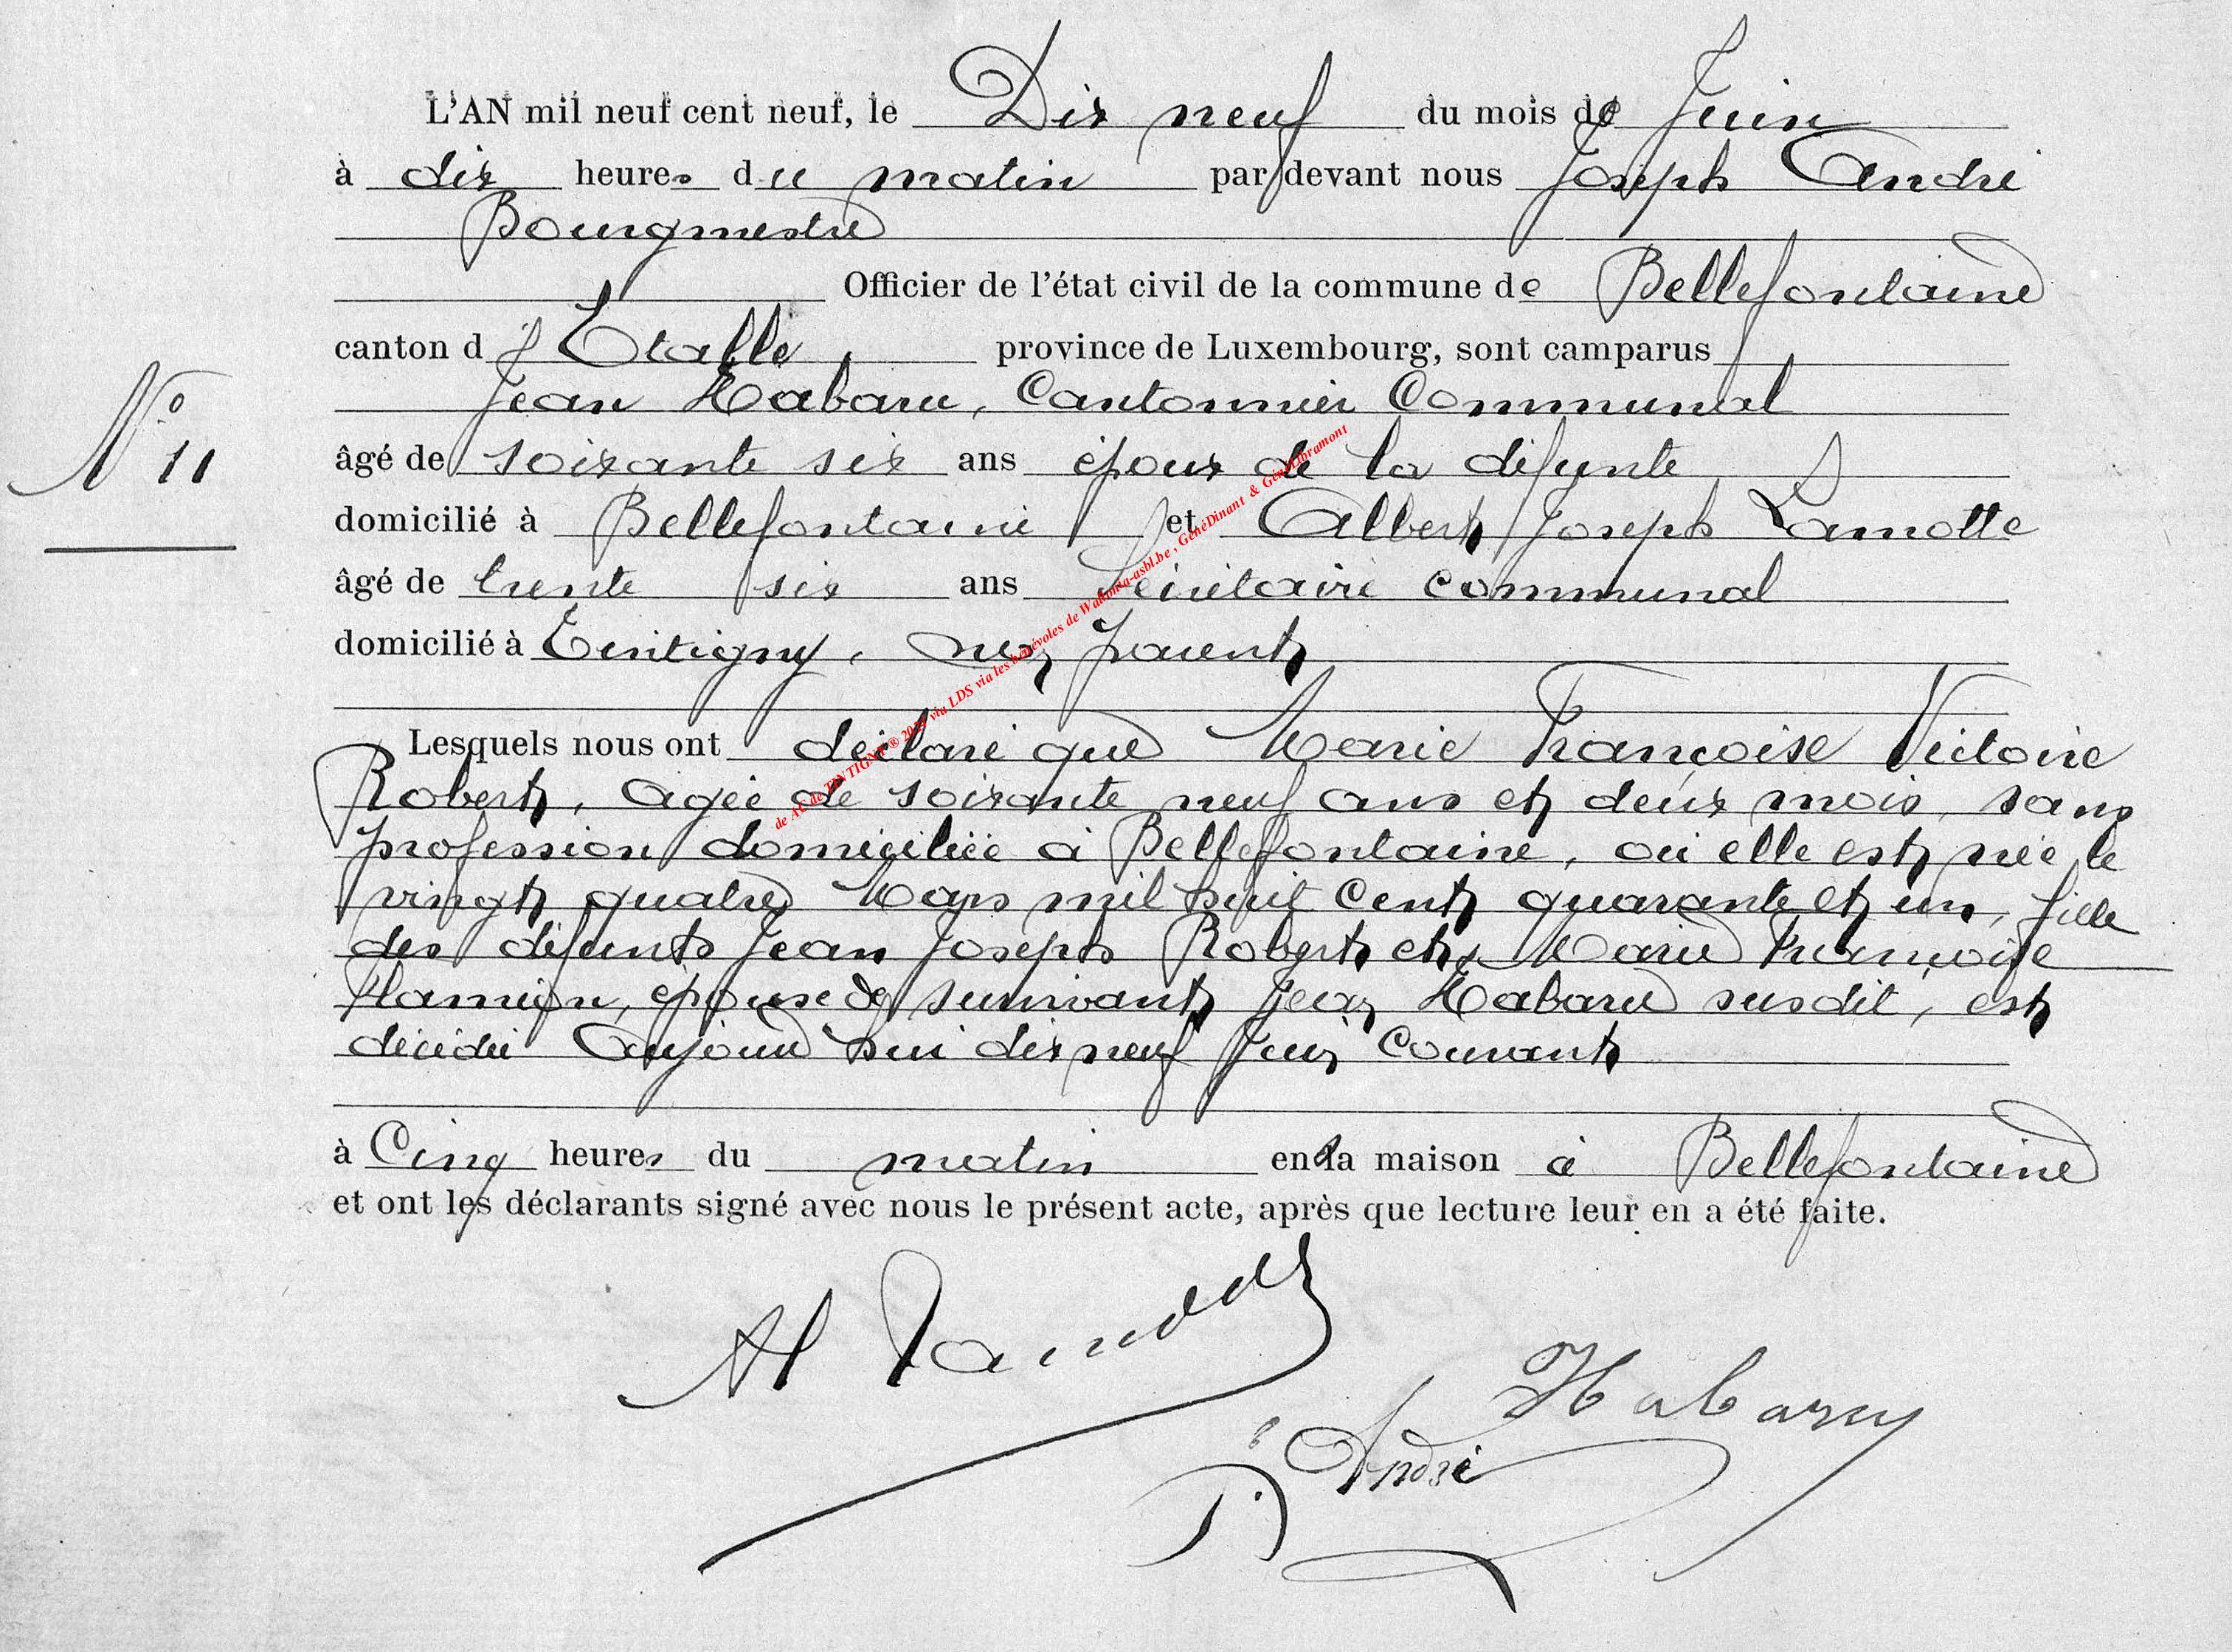 L'AN mil neuf cent neuf, le Dix neuf du mois de Juin
à dix heures du matin par devant nous Joseph André
Bourgmestre
Officier de l'état civil de la commune de Bellefontaine
canton d'Etalle province de Luxembourg, sont camparus
Jean Habaru, Cantonnier Communal
N° 11
âgé de soixante six ans époux de la défunte
domicilié à Bellefontaine et Albert Joseph Lamotte
âgé de trente six ans communal
domicilié à Tintigny, parent
Lesquels nous ont déclaré que Marie Françoise Victoire
Robert, agée de soixante neuf ans et deux mois, sans
profession domiciliée à Bellefontaine, où elle est née le
vingt quatre Mars mil huit cent quarante et un, fille
des défunts Jean Joseph Robert et Marie Françoise
Hamion, épouse de survivant Jean Habaru susdit, est
décédée aujourd hui dix neuf Juin Courant
à Cinq heures du matin en la maison à Bellefontaine
et ont les déclarants signé avec nous le présent acte, après que lecture leur en a été faite.
Habaru
J. André
de AC de TINTIGNY ® 2019 via LDS via les bénévoles de Wallonia-asbl.be , GénéDinant & GénéLibramont